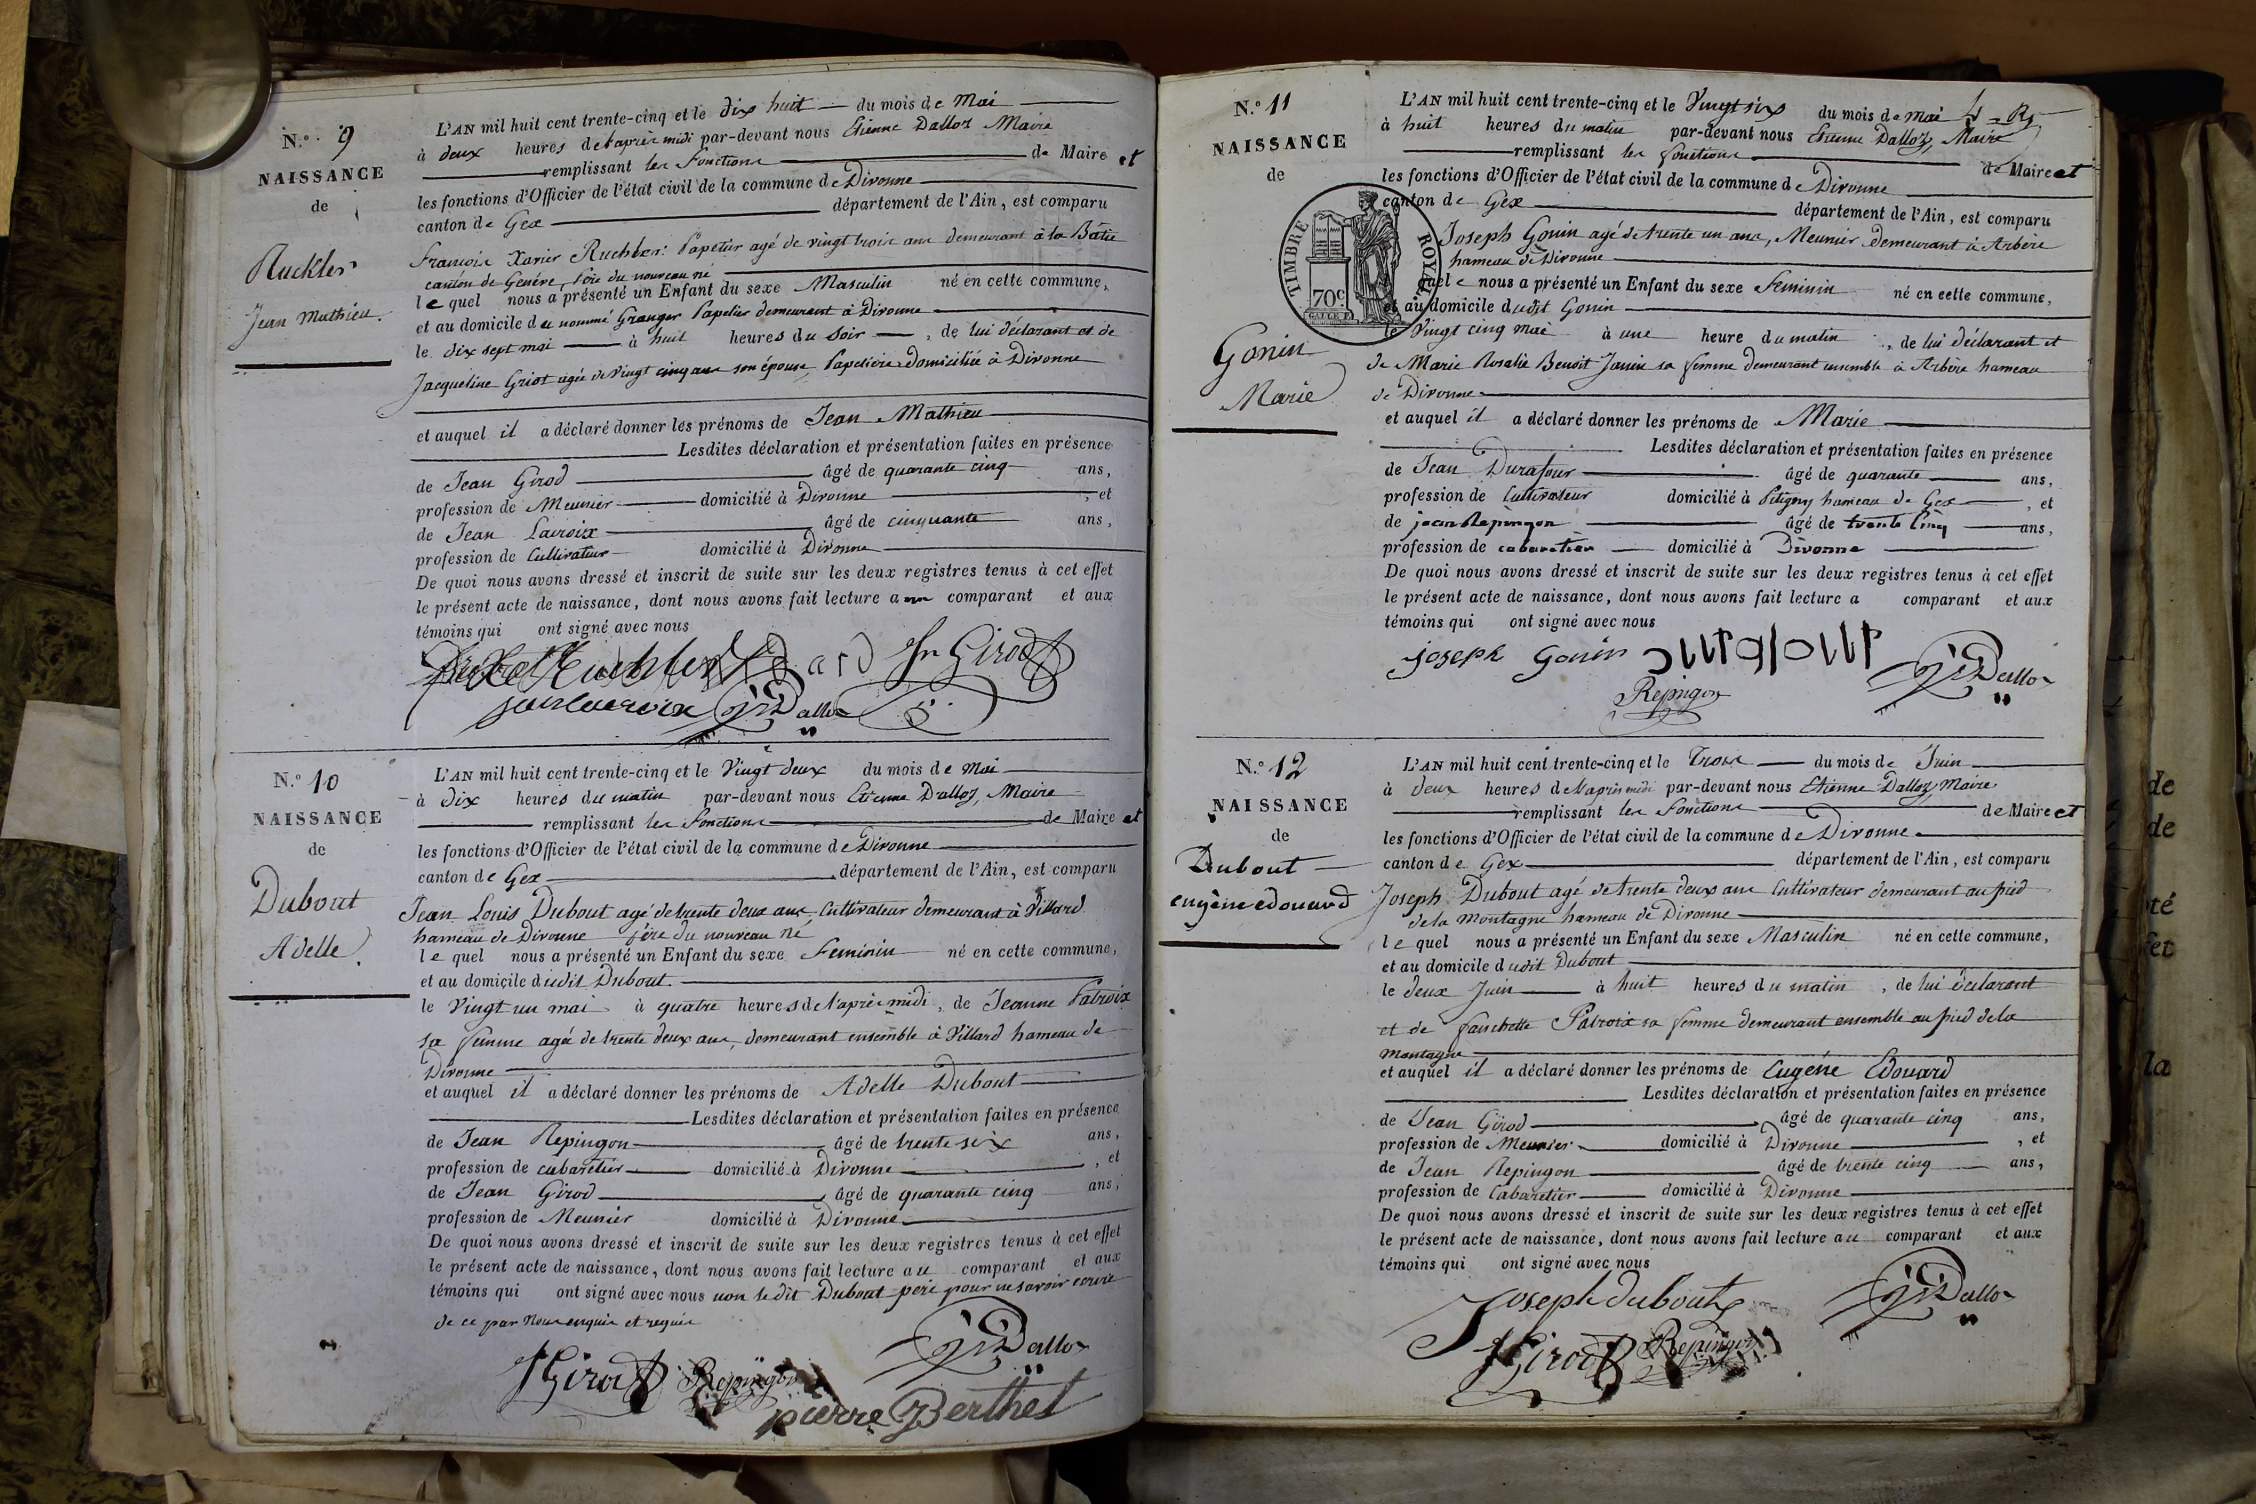 N.° 9
NAISSANCE
de
Ruckler
Jean Mathieu.
L'AN mil huit cent trente-cinq et le dix huit du mois de Mai
à deux heures de l'après midi par-devant nous Etienne Dalloz Maire
remplissant les fonctions de Maire et
les fonctions d'Officier de l'état civil de la commune de Divonne
canton de Gex département de l'Ain, est comparu
François Xavier Ruchler Papetier agé de vingt trois ans demeurant à la Bâtie
canton de Genève, Père du nouveau né
le quel nous a présenté un Enfant du sexe Masculin né en cette commune,
et au domicile du nommé Granger Papetier demeurant à Divonne
le dix sept mai à huit heures du soir, de lui déclarant et de
Jacqueline Griot agée de vingt cinq ans son épouse Papetière domiciliée à Divonne
et auquel il a déclaré donner les prénoms de Jean Mathieu
Lesdites déclaration et présentation faites en présence
de Jean Girod âgé de quarante cinq ans,
profession de Meunier domicilié à Divonne, et
de Jean Lacroix âgé de cinquante ans,
profession de Cultivateur domicilié à Divonne
De quoi nous avons dressé et inscrit de suite sur les deux registres tenus à cet effet
le présent acte de naissance, dont nous avons fait lecture au comparant et aux
témoins qui ont signé avec nous
Jn Girod
jean lacroix Dalloz
N.° 10
NAISSANCE
de
Dubout
Adelle.
L'AN mil huit cent trente-cinq et le Vingt deux du mois de Mai
à dix heures du matin par-devant nous Etienne Dalloz, Maire
remplissant les fonctions de Maire et
les fonctions d'Officier de l'état civil de la commune de Divonne
canton de Gex département de l'Ain, est comparu
Jean Louis Dubout agé de trente deux ans, Cultivateur demeurant à Villard
hameau de Divonne père du nouveau né
le quel nous a présenté un Enfant du sexe Feminin né en cette commune,
et au domicile dudit Dubout.
le Vingt un mai à quatre heures de l'après midi, de Jeanne Patroix
sa femme agée de trente deux ans, demeurant ensemble à Villard hameau de
Divonne
et auquel il a déclaré donner les prénoms de Adelle Dubout
Lesdites déclaration et présentation faites en présence
de Jean Repingon âgé de trente six ans,
profession de cabaretier domicilié à Divonne, et
de Jean Girod âgé de quarante cinq ans,
profession de Meunier domicilié à Divonne
De quoi nous avons dressé et inscrit de suite sur les deux registres tenus à cet effet
le présent acte de naissance, dont nous avons fait lecture au comparant et aux
témoins qui ont signé avec nous non le dit Dubout père pour ne savoir ecrire
de ce par nous enquis et requis
Dalloz
JGirod Repingon
pierre Berthet
N.° 11
NAISSANCE
de
TIMBRE ROYAL
70c
Gonin
Marie
L'AN mil huit cent trente-cinq et le Vingt six du mois de mai
à huit heures du matin par-devant nous Etienne Dalloz, Maire
remplissant les fonctions de Maire et
les fonctions d'Officier de l'état civil de la commune de Divonne
canton de Gex département de l'Ain, est comparu
Joseph Gonin agé de trente un ans, Meunier demeurant à Arbère
hameau de Divonne
quel nous a présenté un Enfant du sexe Feminin né en cette commune,
et au domicile dudit Gonin
le Vingt cinq mai à une heure du matin, de lui déclarant et
de Marie Rosalie Benoit Janin sa femme demeurant ensemble à Arbère hameau
de Divonne
et auquel il a déclaré donner les prénoms de Marie
Lesdites déclaration et présentation faites en présence
de Jean Durafour âgé de quarante ans,
profession de Cultivateur domicilié à Pitigny hameau de Gex, et
de jean Repingon âgé de trente Cinq ans,
profession de cabaretier domicilié à Divonne
De quoi nous avons dressé et inscrit de suite sur les deux registres tenus à cet effet
le présent acte de naissance, dont nous avons fait lecture a comparant et aux
témoins qui ont signé avec nous
joseph Gonin Dalloz
Repingon
N.° 12
NAISSANCE
de
Dubout
eugène edouard
L'AN mil huit cent trente-cinq et le Trois du mois de Juin
à deux heures de l'après midi par-devant nous Etienne Dalloz, Maire
remplissant les fonctions de Maire et
les fonctions d'Officier de l'état civil de la commune de Divonne
canton de Gex département de l'Ain, est comparu
Joseph Dubout agé de trente deux ans Cultivateur demeurant au pied
de la Montagne hameau de Divonne
le quel nous a présenté un Enfant du sexe Masculin né en cette commune,
et au domicile dudit Dubout
le deux Juin à huit heures du matin, de lui déclarant
et de Patroix sa femme demeurant ensemble au pied de la
Montagne
et auquel il a déclaré donner les prénoms de Eugène Edouard
Lesdites déclaration et présentation faites en présence
de Jean Girod âgé de quarante cinq ans,
profession de Meunier domicilié à Divonne, et
de Jean Repingon âgé de trente cinq ans,
profession de Cabaretier domicilié à Divonne
De quoi nous avons dressé et inscrit de suite sur les deux registres tenus à cet effet
le présent acte de naissance, dont nous avons fait lecture au comparant et aux
témoins qui ont signé avec nous
Joseph dubout Dalloz
JGirod Repingon